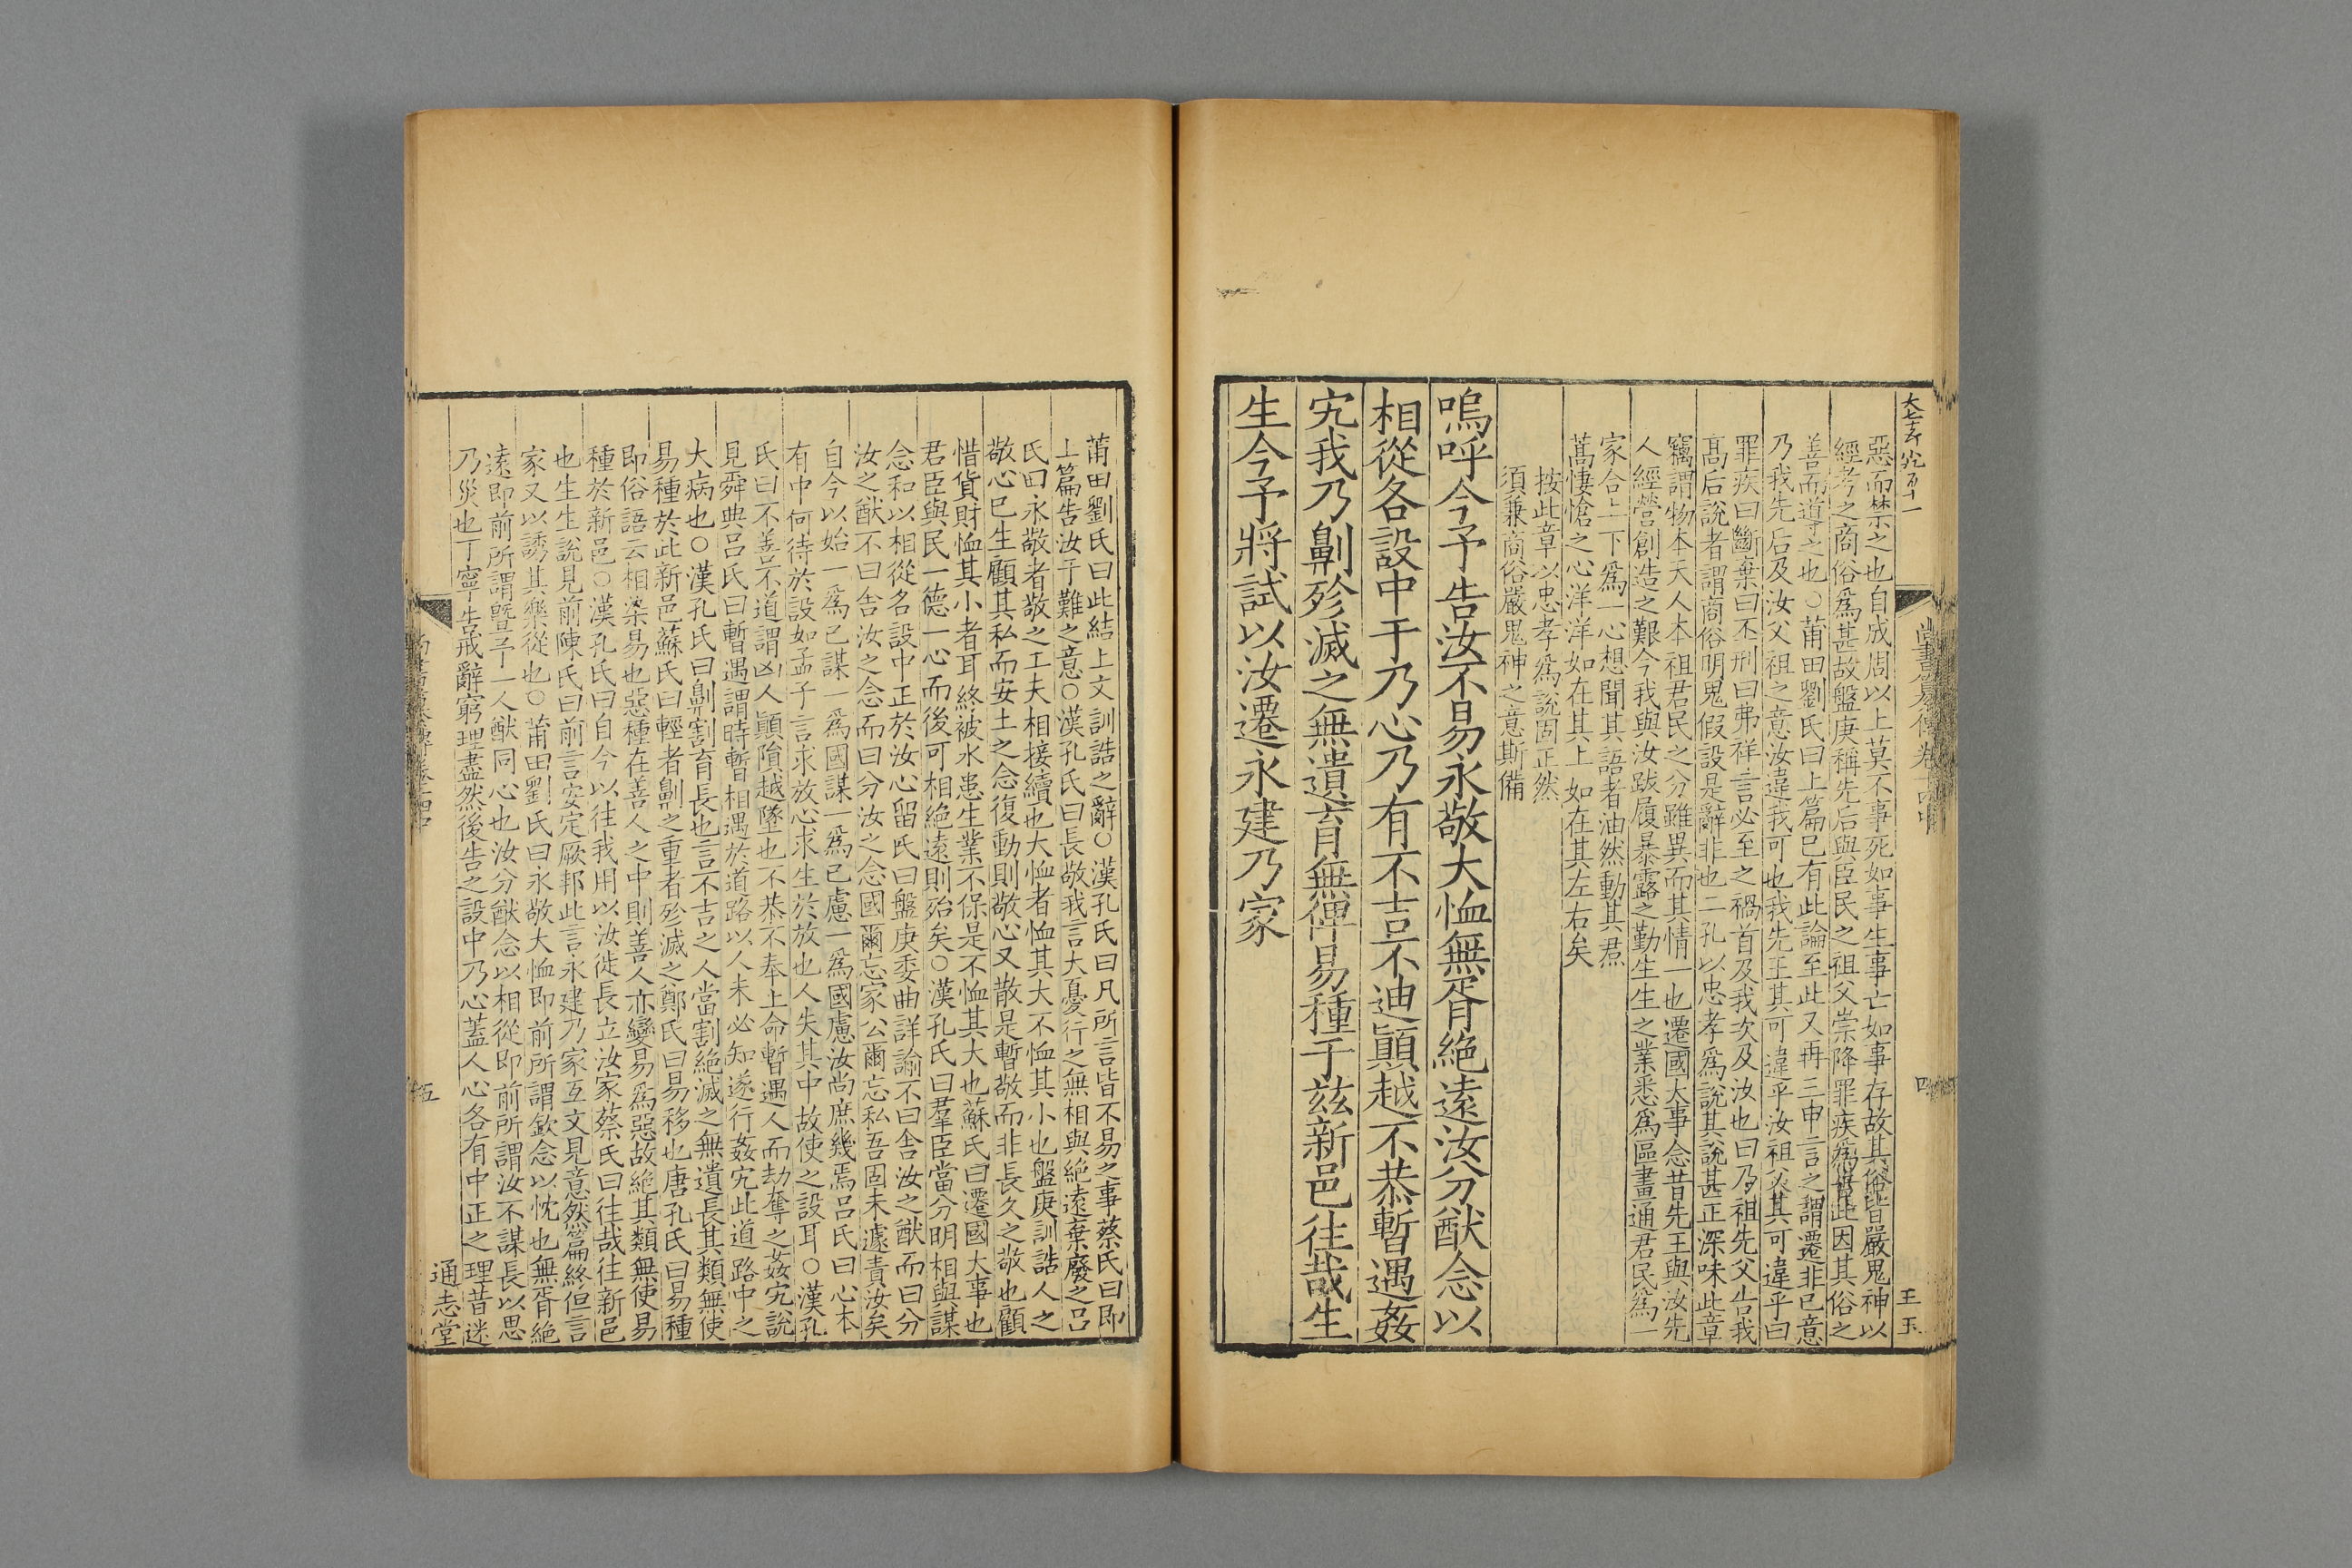 惡而禁之也自成周以上莫不事死如事生事亡如事存故其俗皆嚴鬼神以
經考之商俗爲甚故盤庚稱先后與臣民之祖父崇降罪疾爲告此因其俗之
善而導之也○莆田劉氏曰上篇已有此論至此又再三申言之謂遷非已意
乃我先后及汝父祖之意汝違我可也我先王其可違乎汝祖父其可違乎曰
罪疾曰斷棄曰不刑曰弗祥言必至之禍首及我次及汝也曰乃祖先父告我
高后説者謂商俗明鬼假設是辭非也二孔以忠孝爲說其説甚正深味此章
竊謂物本天人本祖君民之分雖異而其情一也遷國大事念昔先王與汝先
人經營創造之艱今我與汝跋履暴露之勤生生之業悉爲區畫通君民爲一
家合上下爲一心想聞其語者油然動其焄
蒿悽愴之心洋洋如在其上如在其左右矣
按此章以忠孝爲說固正然
須兼商俗嚴鬼神之意斯備
嗚呼今予告汝不易永敬大恤無胥絶遠汝分猷念以
相從各設中于乃心乃有不吉不迪顚越不恭暫遇姦
宄我乃劓殄滅之無遺育無俾易種于兹新邑往哉生
生今予將試以汝遷永建乃家
尚書纂傳卷十四中
四
王玉
莆田劉氏曰此結上文訓誥之辭○漢孔氏曰凡所言皆不易之事蔡氏曰即
上篇告汝于難之意○漢孔氏曰長敬我言大憂行之無相與絶遠棄廢之吕
氏曰永敬者敬之工夫相接續也大恤者恤其大不恤其小也盤庚訓誥人之
敬心已生顧其私而安土之念復動則敬心又散是暫敬而非長久之敬也顧
惜貨財恤其小者耳終被水患生業不保是不恤其大也蘇氏曰遷國大事也
君臣與民一德一心而後可相絶遠則殆矣○漢孔氏曰羣臣當分明相與謀
念和以相從名設中正於汝心留氏曰盤庚委曲詳諭不曰舍汝之猷而曰分
汝之猷不曰舍汝之念而曰分汝之念國爾忘家公爾忘私吾固未遽責汝矣
自今以始一爲已謀一爲國謀一爲已慮一爲國慮汝尚庶幾焉吕氏曰心本
有中何待於設如孟子言求放心求生於放也人失其中故使之設耳○漢孔
氏曰不善不道謂凶人顚隕越墜也不恭不奉上命暫遇人而劫奪之姦宄說
見舜典吕氏曰暫遇謂時暫相遇於道路以人未必知遂行姦宄此道路中之
大病也○漢孔氏曰劓割育長也言不吉之人當割絶滅之無遺長其類無使
易種於此新邑蘇氏曰輕者劓之重者殄滅之鄭氏曰易移也唐孔氏曰易種
即俗語云相染易也惡種在善人之中則善人亦變易爲惡故絶其類無使易
種於新邑○漢孔氏曰自今以往我用以汝徙長立汝家蔡氏曰往哉往新邑
也生生說見前陳氏曰前言安定厥邦此言永建乃家互文見意然篇終但言
家又以誘其樂從也○莆田劉氏曰永敬大恤即前所謂欽念以忱也無胥絶
遠即前所謂曁予一人猷同心也汝分猷念以相從即前所謂汝不謀長以思
乃災也丁寧告戒辭窮理盡然後告之設中乃心蓋人心各有中正之理昔迷
五
通志堂